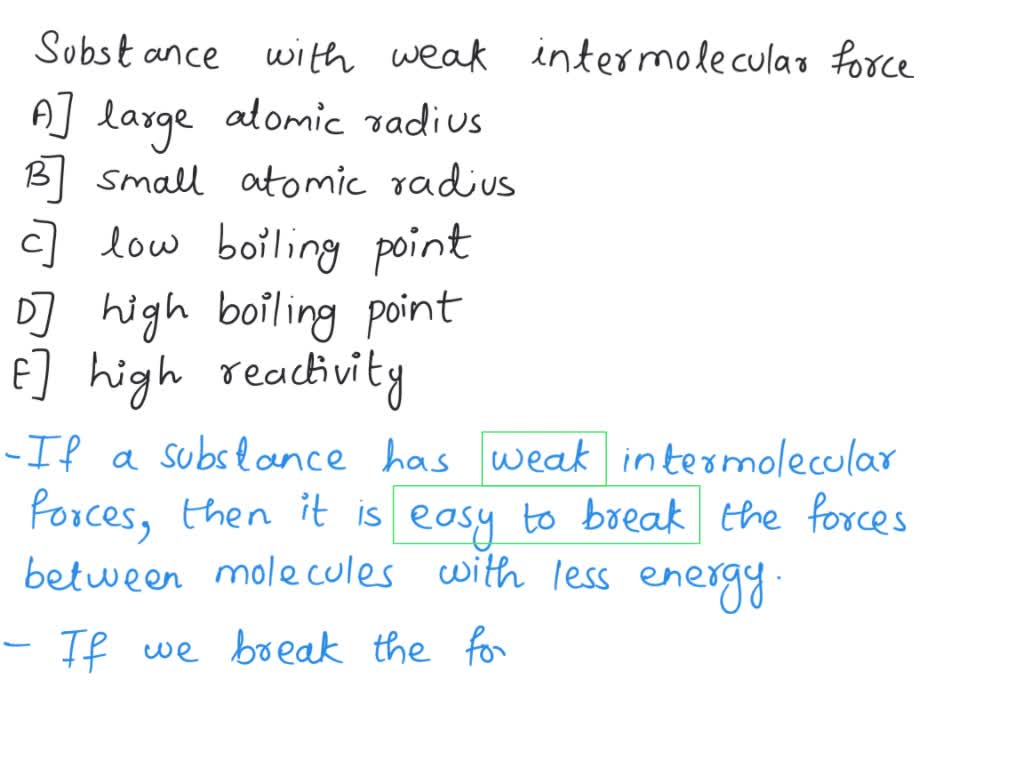 Substance with weak intermolecular force
A] large atomic radius
B] small atomic radius
C] low boiling point
D] high boiling point
E] high reactivity
- If a substance has weak intermolecular
forces, then it is easy to break the forces
between molecules with less energy.
- If we break the for